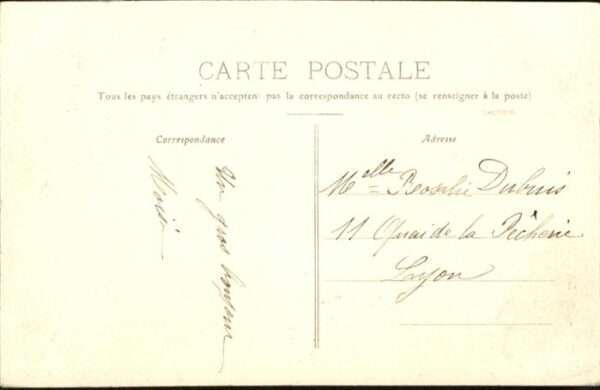 CARTE POSTALE
Tous les pays étrangers n'acceptent pas la correspondance au recto (se renseigner à la poste)
Correspondance
Un gros bonjour
Adresse
Melle Dubuis
11 Quai de la Pêcherie
Lyon